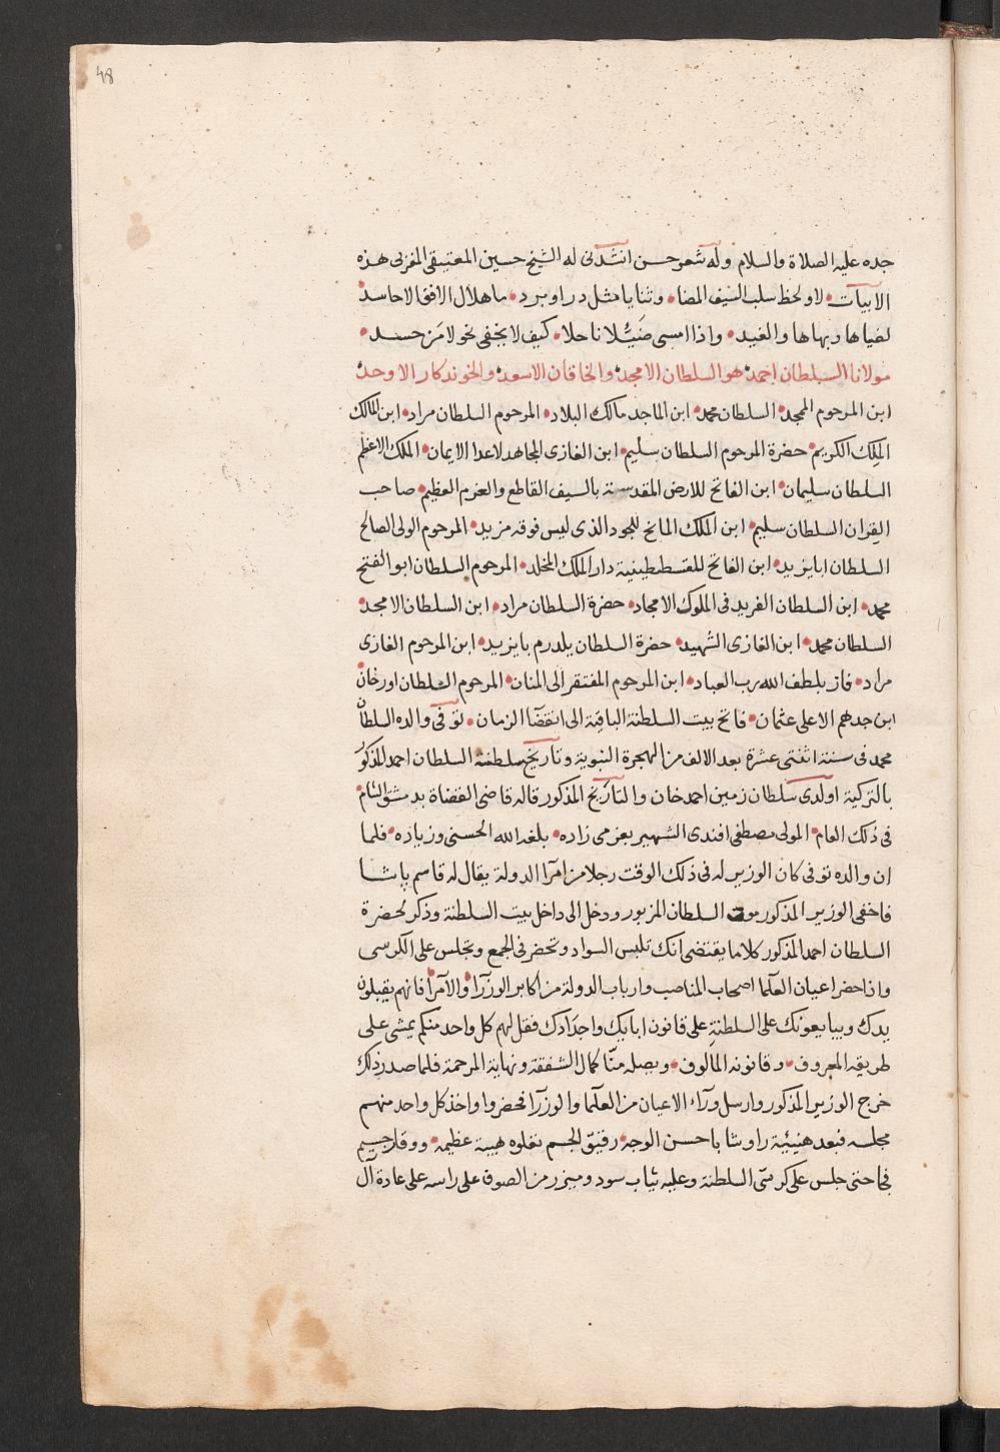 48
جده عليه الصلاة والسلام وله شعر حسن انشدنى له الشيخ حسين المعتيقى المغربى هذه
الابيات • لاولحظ سلب السيف المضا • وثنايا مثل در او برد • ما هلال الافق الا حاسد
لضياها وبهاها والغيد • واذا امسى ضئيلا ناحلا • كيف لا يخفى نحولا من حسد •
مولانا السلطان احمد هو السلطان الامجد • والخاقان الاسعد • والخوندكار الاوحد
ابن المرحوم المجد • السلطان محمد • ابن الماجد مالك البلاد • المرحوم السلطان مراد • ابن المالك
الملك الكريم • حضرة المرحوم السلطان سليم • ابن الغازى المجاهد لاعدا الايمان • الملك الاعظم
السلطان سليمان • ابن الفاتح للارض المقدسة بالسيف القاطع والعزم العظيم • صاحب
القران السلطان سليم • ابن الملك المانح للجود الذى ليس فوقه مزيد • المرحوم الولى الصالح
السلطان ابايزيد • ابن الفاتح للقسطيطينية دار الملك المخلد • المرحوم السلطان ابو الفتح
محمد • ابن السلطان الفريد فى الملوك الامجاد • حضرة السلطان مراد • ابن السلطان الامجد •
السلطان محمد • ابن الغازى الشهيد • حضرة السلطان يلدرم بايزيد • ابن المرحوم الغازى
مراد • فاز بلطف الله رب العباد • ابن المرحوم المفتقر الى المنان • المرحوم السلطان اورخان
ابن جدهم الاعلى عثمان • فاتح بيت السلطنة الباقية الى انقضا الزمان • توفى والده السلطان
محمد فى سنة اثنتى عشرة بعد الالف من الهجرة النبوية وتاريخ سلطنة السلطان احمد المذكور
بالتركية اولدى سلطان زمين احمد خان والتاريخ المذكور قاله قاضى القضاة بدمشق الشام •
فى ذلك العام • المولى مصطفى افندى الشهير بعزمى زاده • بلغه الله الحسنى وزياده • فلما
ان والده توفى كان الوزير له فى ذلك الوقت رجلا من امرآ الدولة يقال له قاسم باشا
فاخفى الوزير المذكور موت السلطان المزبور ودخل الى داخل بيت السلطنة وذكر لحضرة
السلطان احمد المذكور كلاما يقتضى انك تلبس السواد وتحضر فى الجمع وتجلس على الكرسى
واذا حضر اعيان العلما اصحاب المناصب وارباب الدولة من اكابر الوزرآ والامرآ فانهم يقبلون
يدك ويبايعونك على السلطنة على قانون ابايك واجدادك فقل لهم كل واحد منكم يمشى على
طريقه المعروف • وقانونه المالوف • ويصله منا كمال الشفقة ونهاية المرحمة فلما صدر ذلك
خرج الوزير المذكور وارسل ورآء الاعيان من العلما والوزرآ فحضروا واخذ كل واحد منهم
مجلسه فبعد هنيئة راو شابا حسن الوجه رقيق الجسم تعلوه هيبة عظيمه • ووقار جسيم
فجا حتى جلس على كرسى السلطنة وعليه ثياب سود وميزر من الصوف على راسه على عادة آل